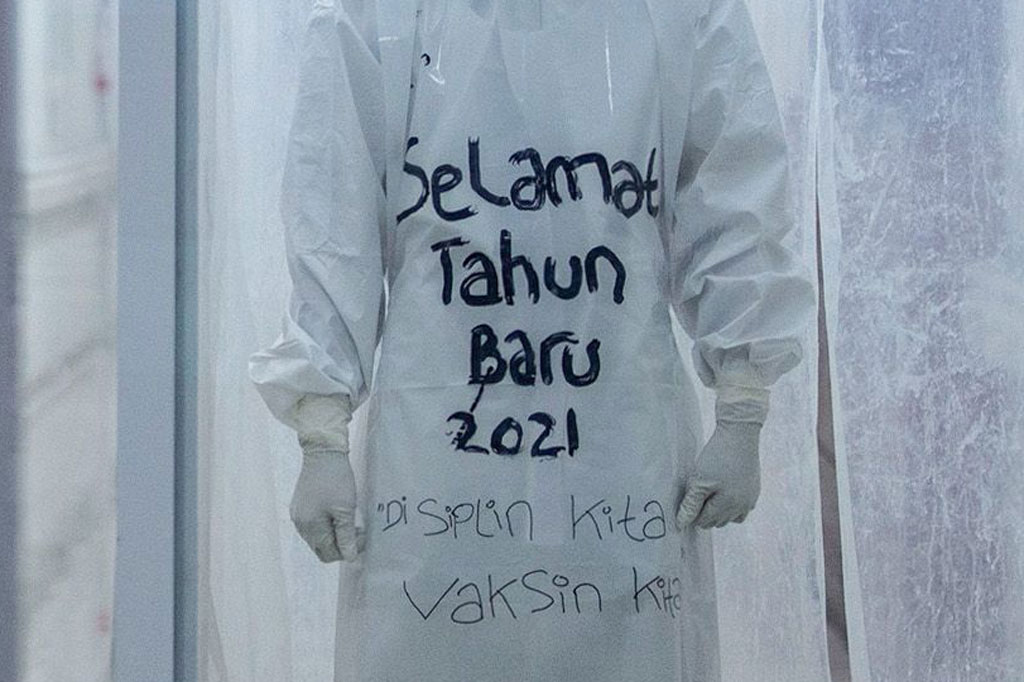 Selamat
Tahun
Baru
2021
"Disiplin Kita
Vaksin Kita